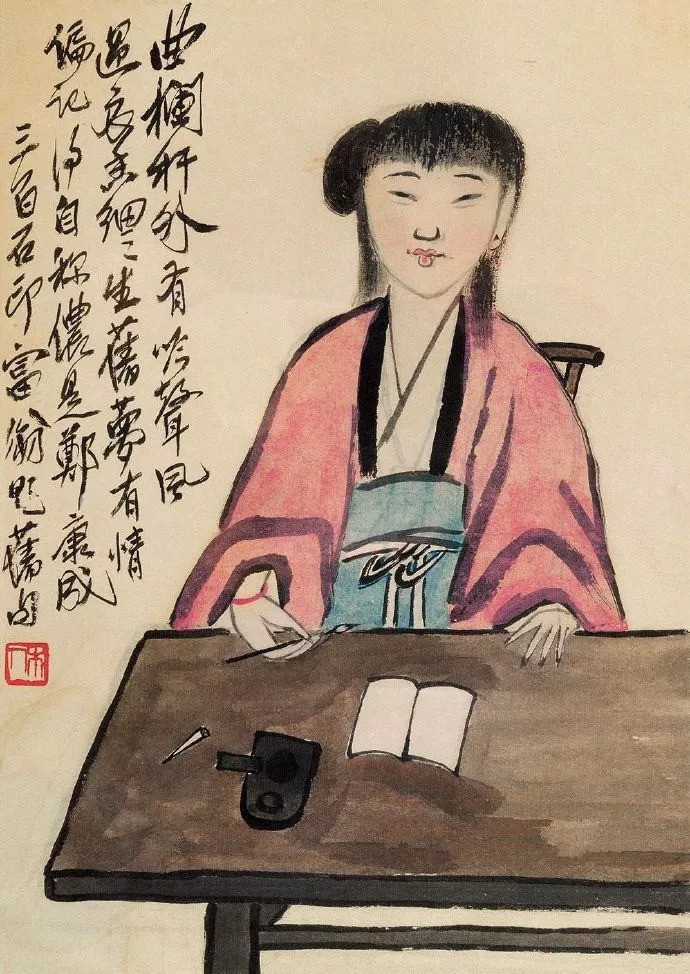 曲欄杆外有吟聲風
過衣香細〻生舊夢有情
偏記得自稱儂是鄭康成
三百石印富翁題舊句
木人